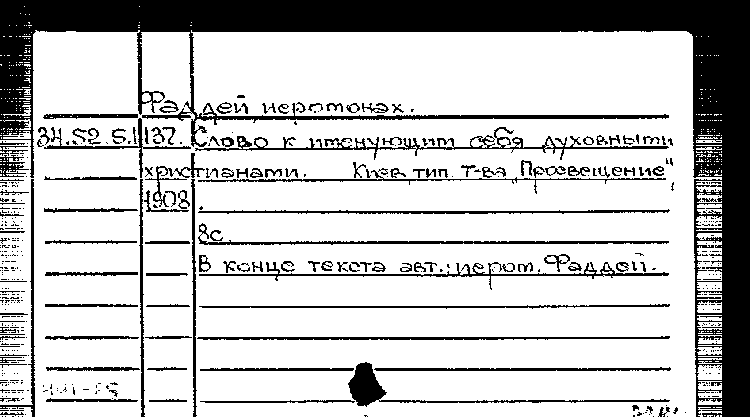 Фаддей, иеромонах.
34.52.5.1137. Слово к именующим себя духовными
христианами. Киев, тип. т-ва „Просвещение",
1908.
8с.
В конце текста авт.: иером. Фаддей.